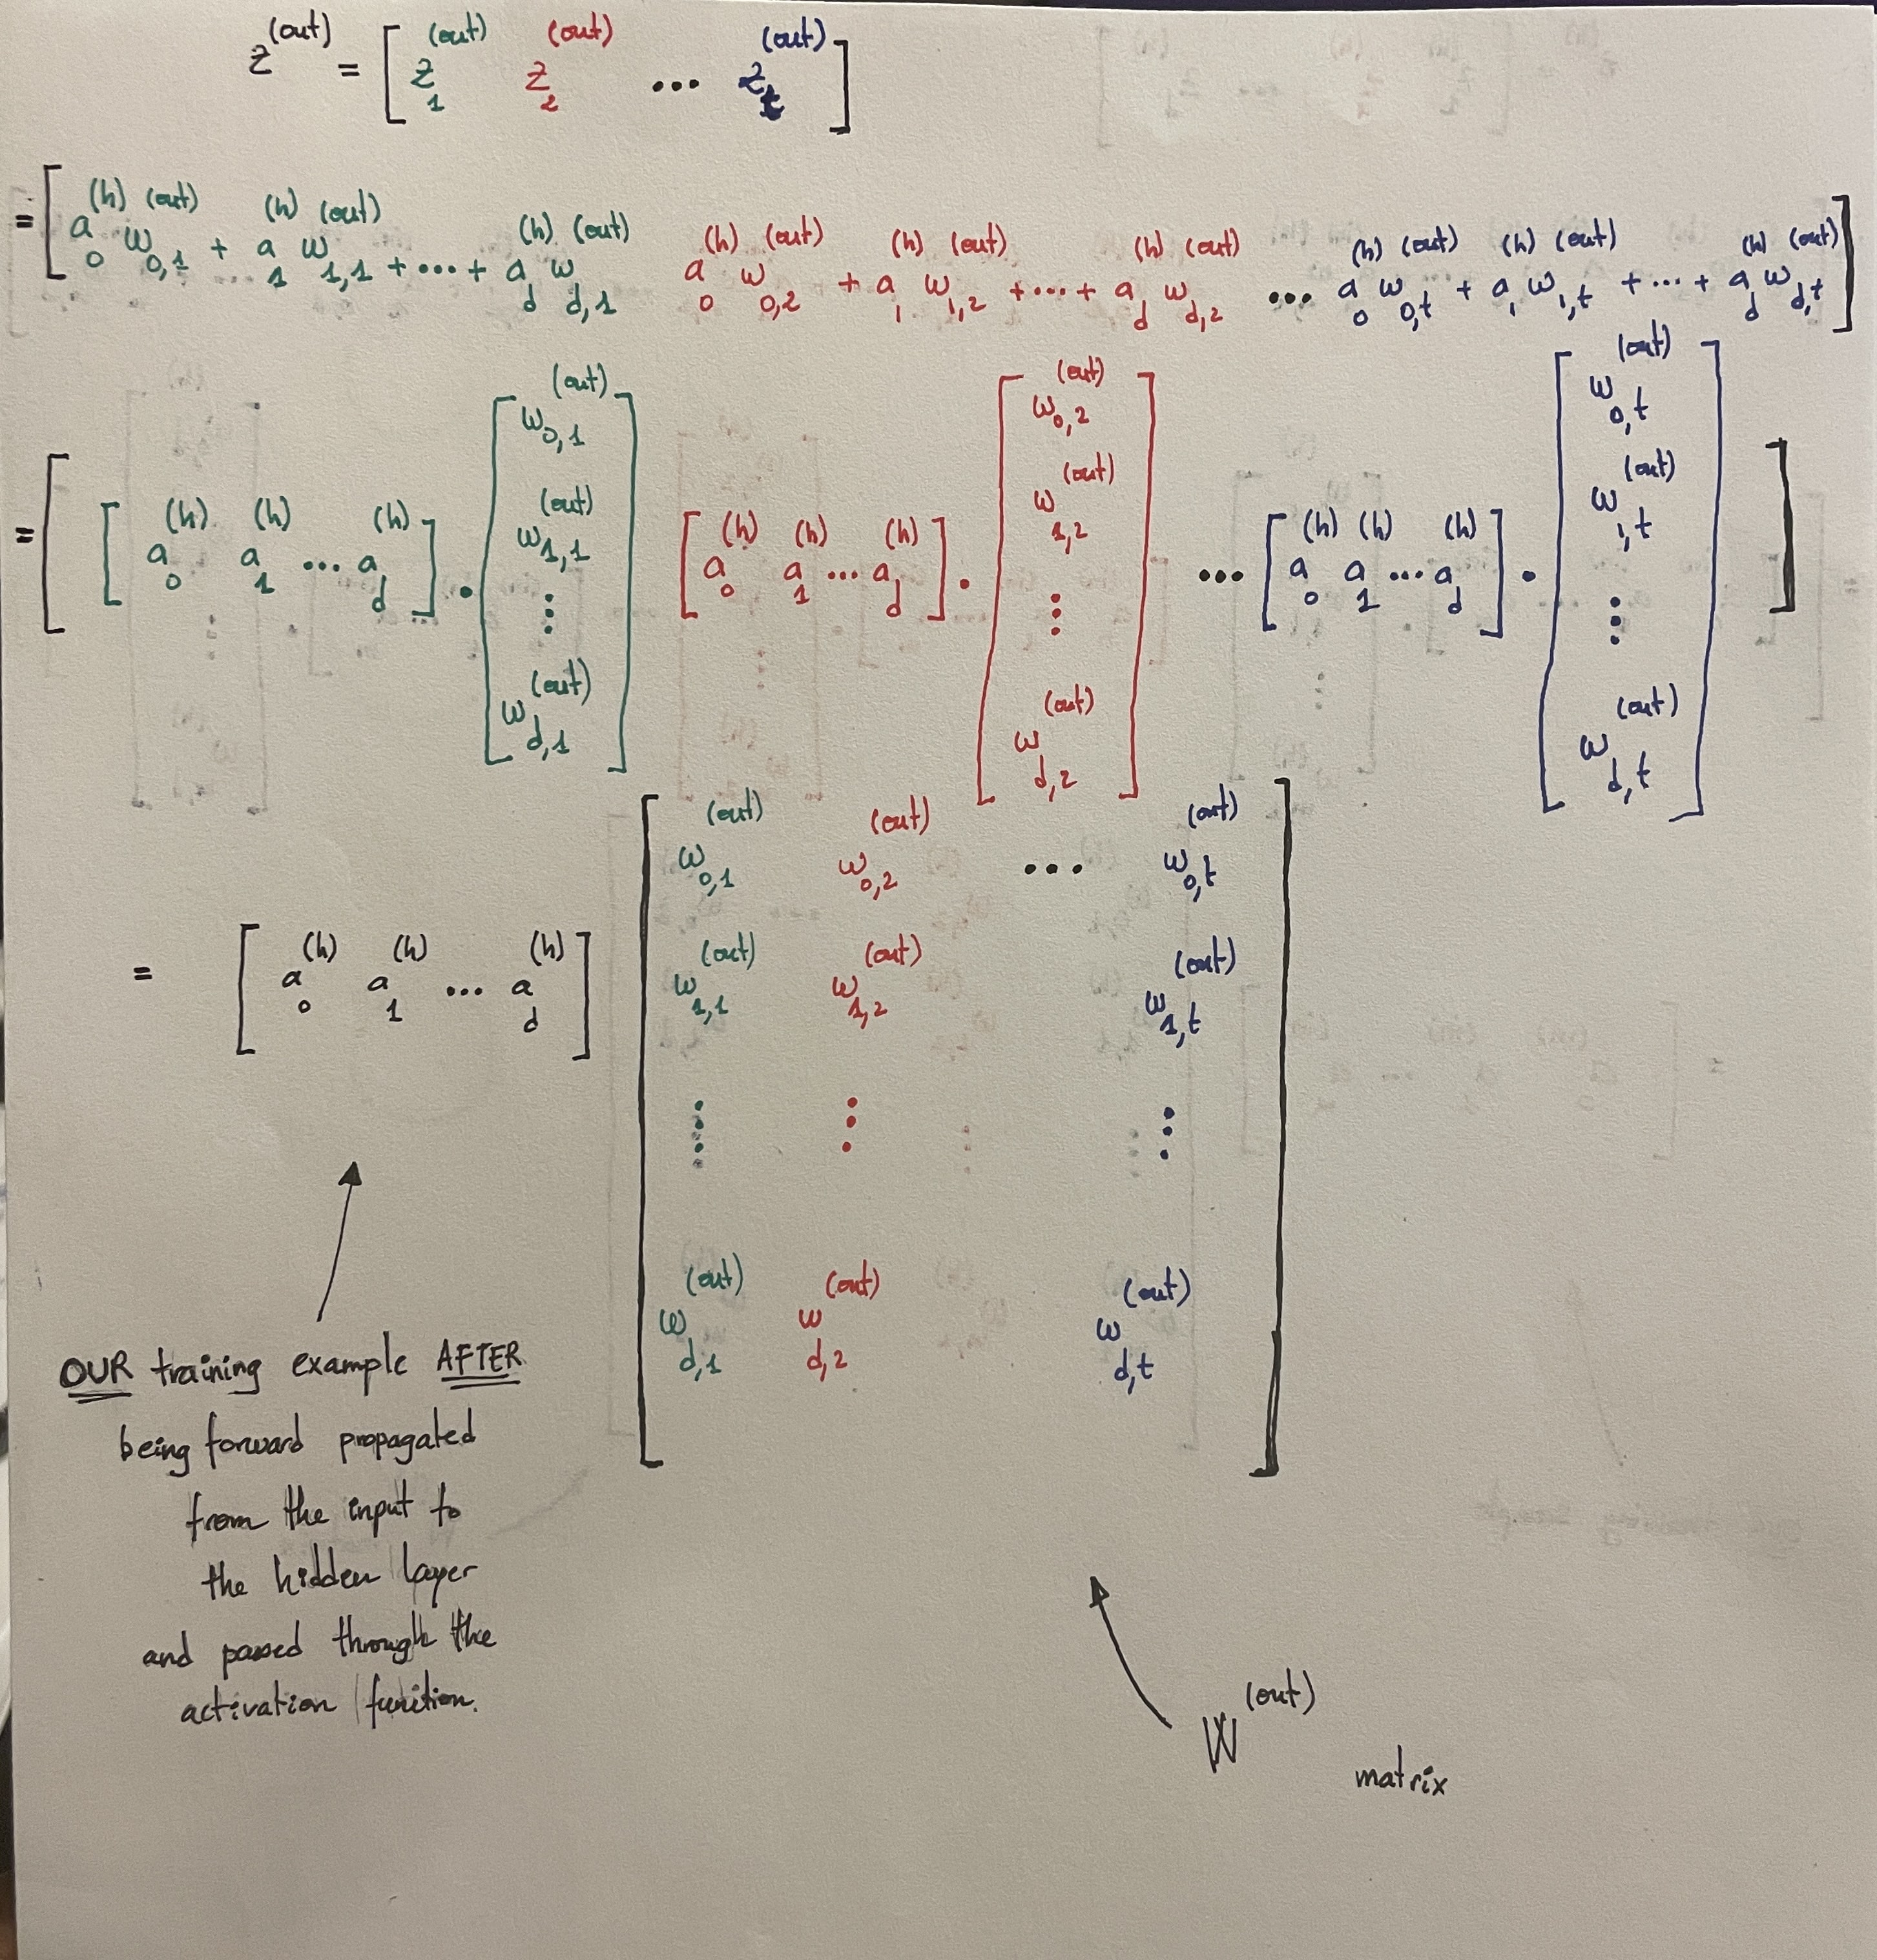 z^(out) = [ z_1^(out) z_2^(out) ... z_t^(out) ]
= [ a_0^(h) w_0,1^(out) + a_1^(h) w_1,1^(out) + ... + a_d^(h) w_d,1^(out) a_0^(h) w_0,2^(out) + a_1^(h) w_1,2^(out) + ... + a_d^(h) w_d,2^(out) ... a_0^(h) w_0,t^(out) + a_1^(h) w_1,t^(out) + ... + a_d^(h) w_d,t^(out) ]
= [ [ a_0^(h) a_1^(h) ... a_d^(h) ] · [ w_0,1^(out) w_1,1^(out) ⋮ w_d,1^(out) ] [ a_0^(h) a_1^(h) ... a_d^(h) ] · [ w_0,2^(out) w_1,2^(out) ⋮ w_d,2^(out) ] ... [ a_0^(h) a_1^(h) ... a_d^(h) ] · [ w_0,t^(out) w_1,t^(out) ⋮ w_d,t^(out) ] ]
= [ a_0^(h) a_1^(h) ... a_d^(h) ] [ w_0,1^(out) w_0,2^(out) ... w_0,t^(out)
w_1,1^(out) w_1,2^(out) w_1,t^(out)
⋮ ⋮ ⋮
w_d,1^(out) w_d,2^(out) w_d,t^(out) ]
OUR training example AFTER
being forward propagated
from the input to
the hidden layer
and passed through the
activation function.
W^(out) matrix